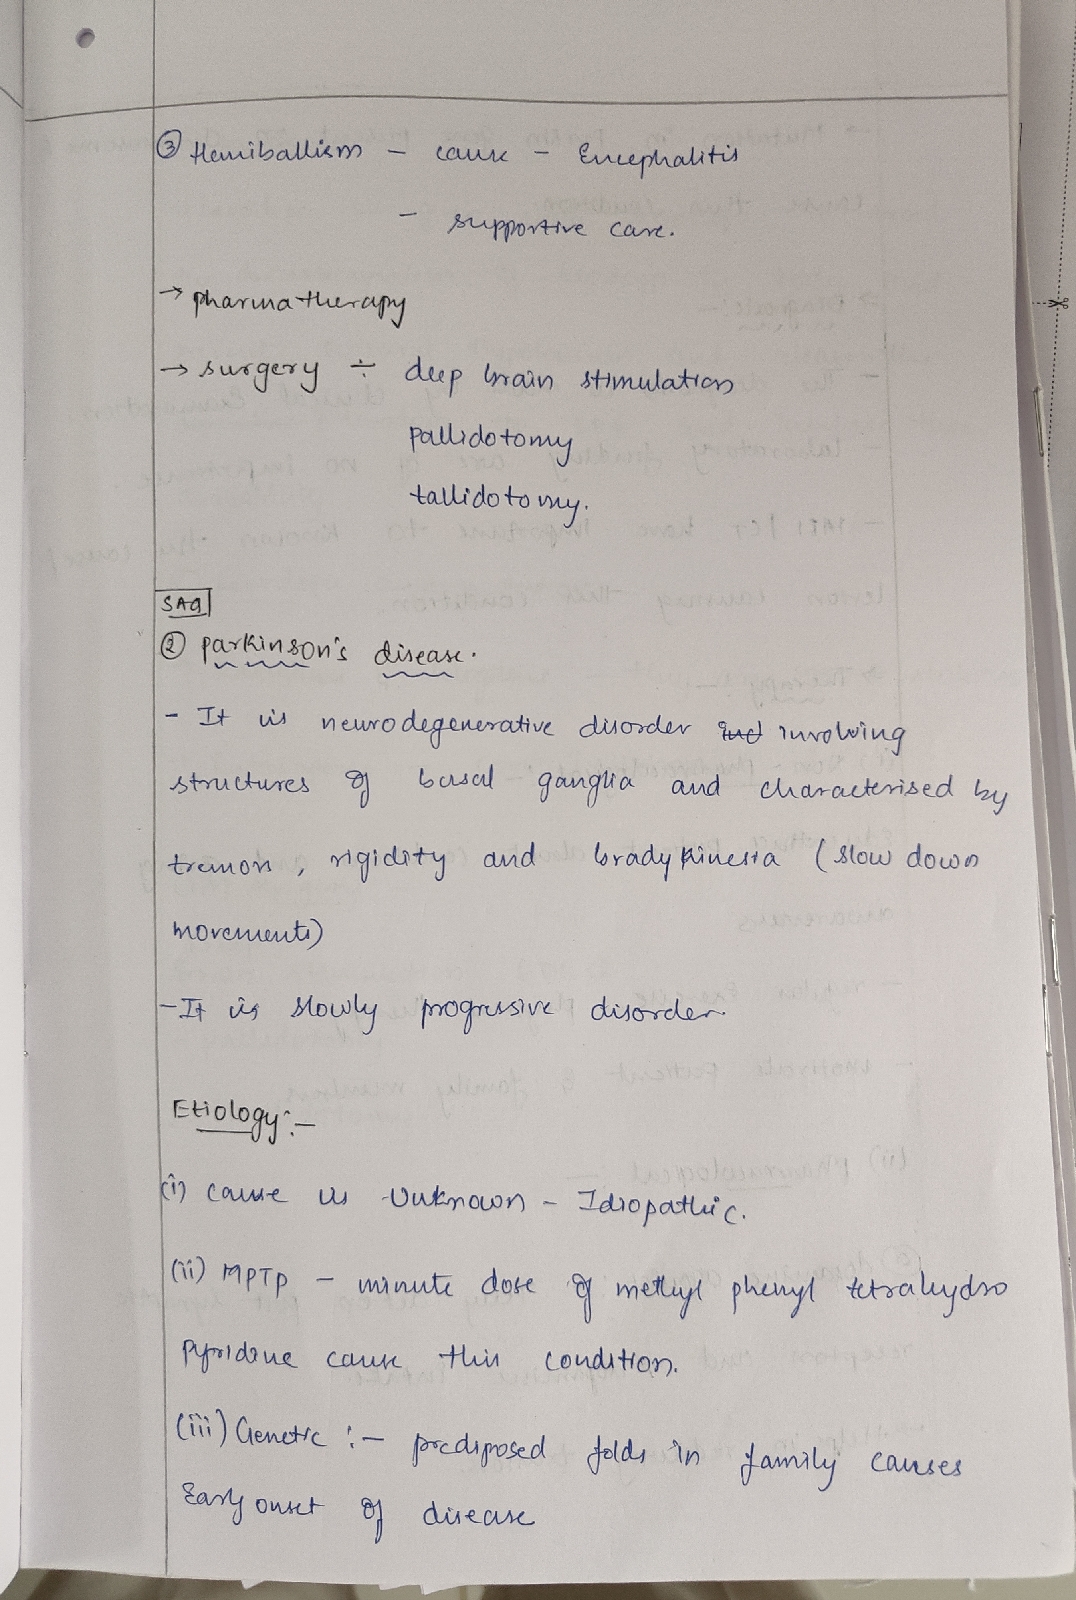 ③ Hemiballism - cause - Encephalitis
- supportive care.
→ pharmatherapy
→ surgery ÷ deep brain stimulation
pallidotomy
tallidotomy.
SAQ
② parkinson's disease.
- It is neurodegenerative disorder involving
structures of basal ganglia and characterised by
tremors, rigidity and bradykinesia (slow down
movements)
- It is slowly progressive disorder.
Etiology :-
(i) cause is Unknown - Idiopathic.
(ii) MPTP - minute dose of methyl phenyl tetrahydro
pyridine cause this condition.
(iii) Genetic :- predisposed folds in family causes
Early onset of disease